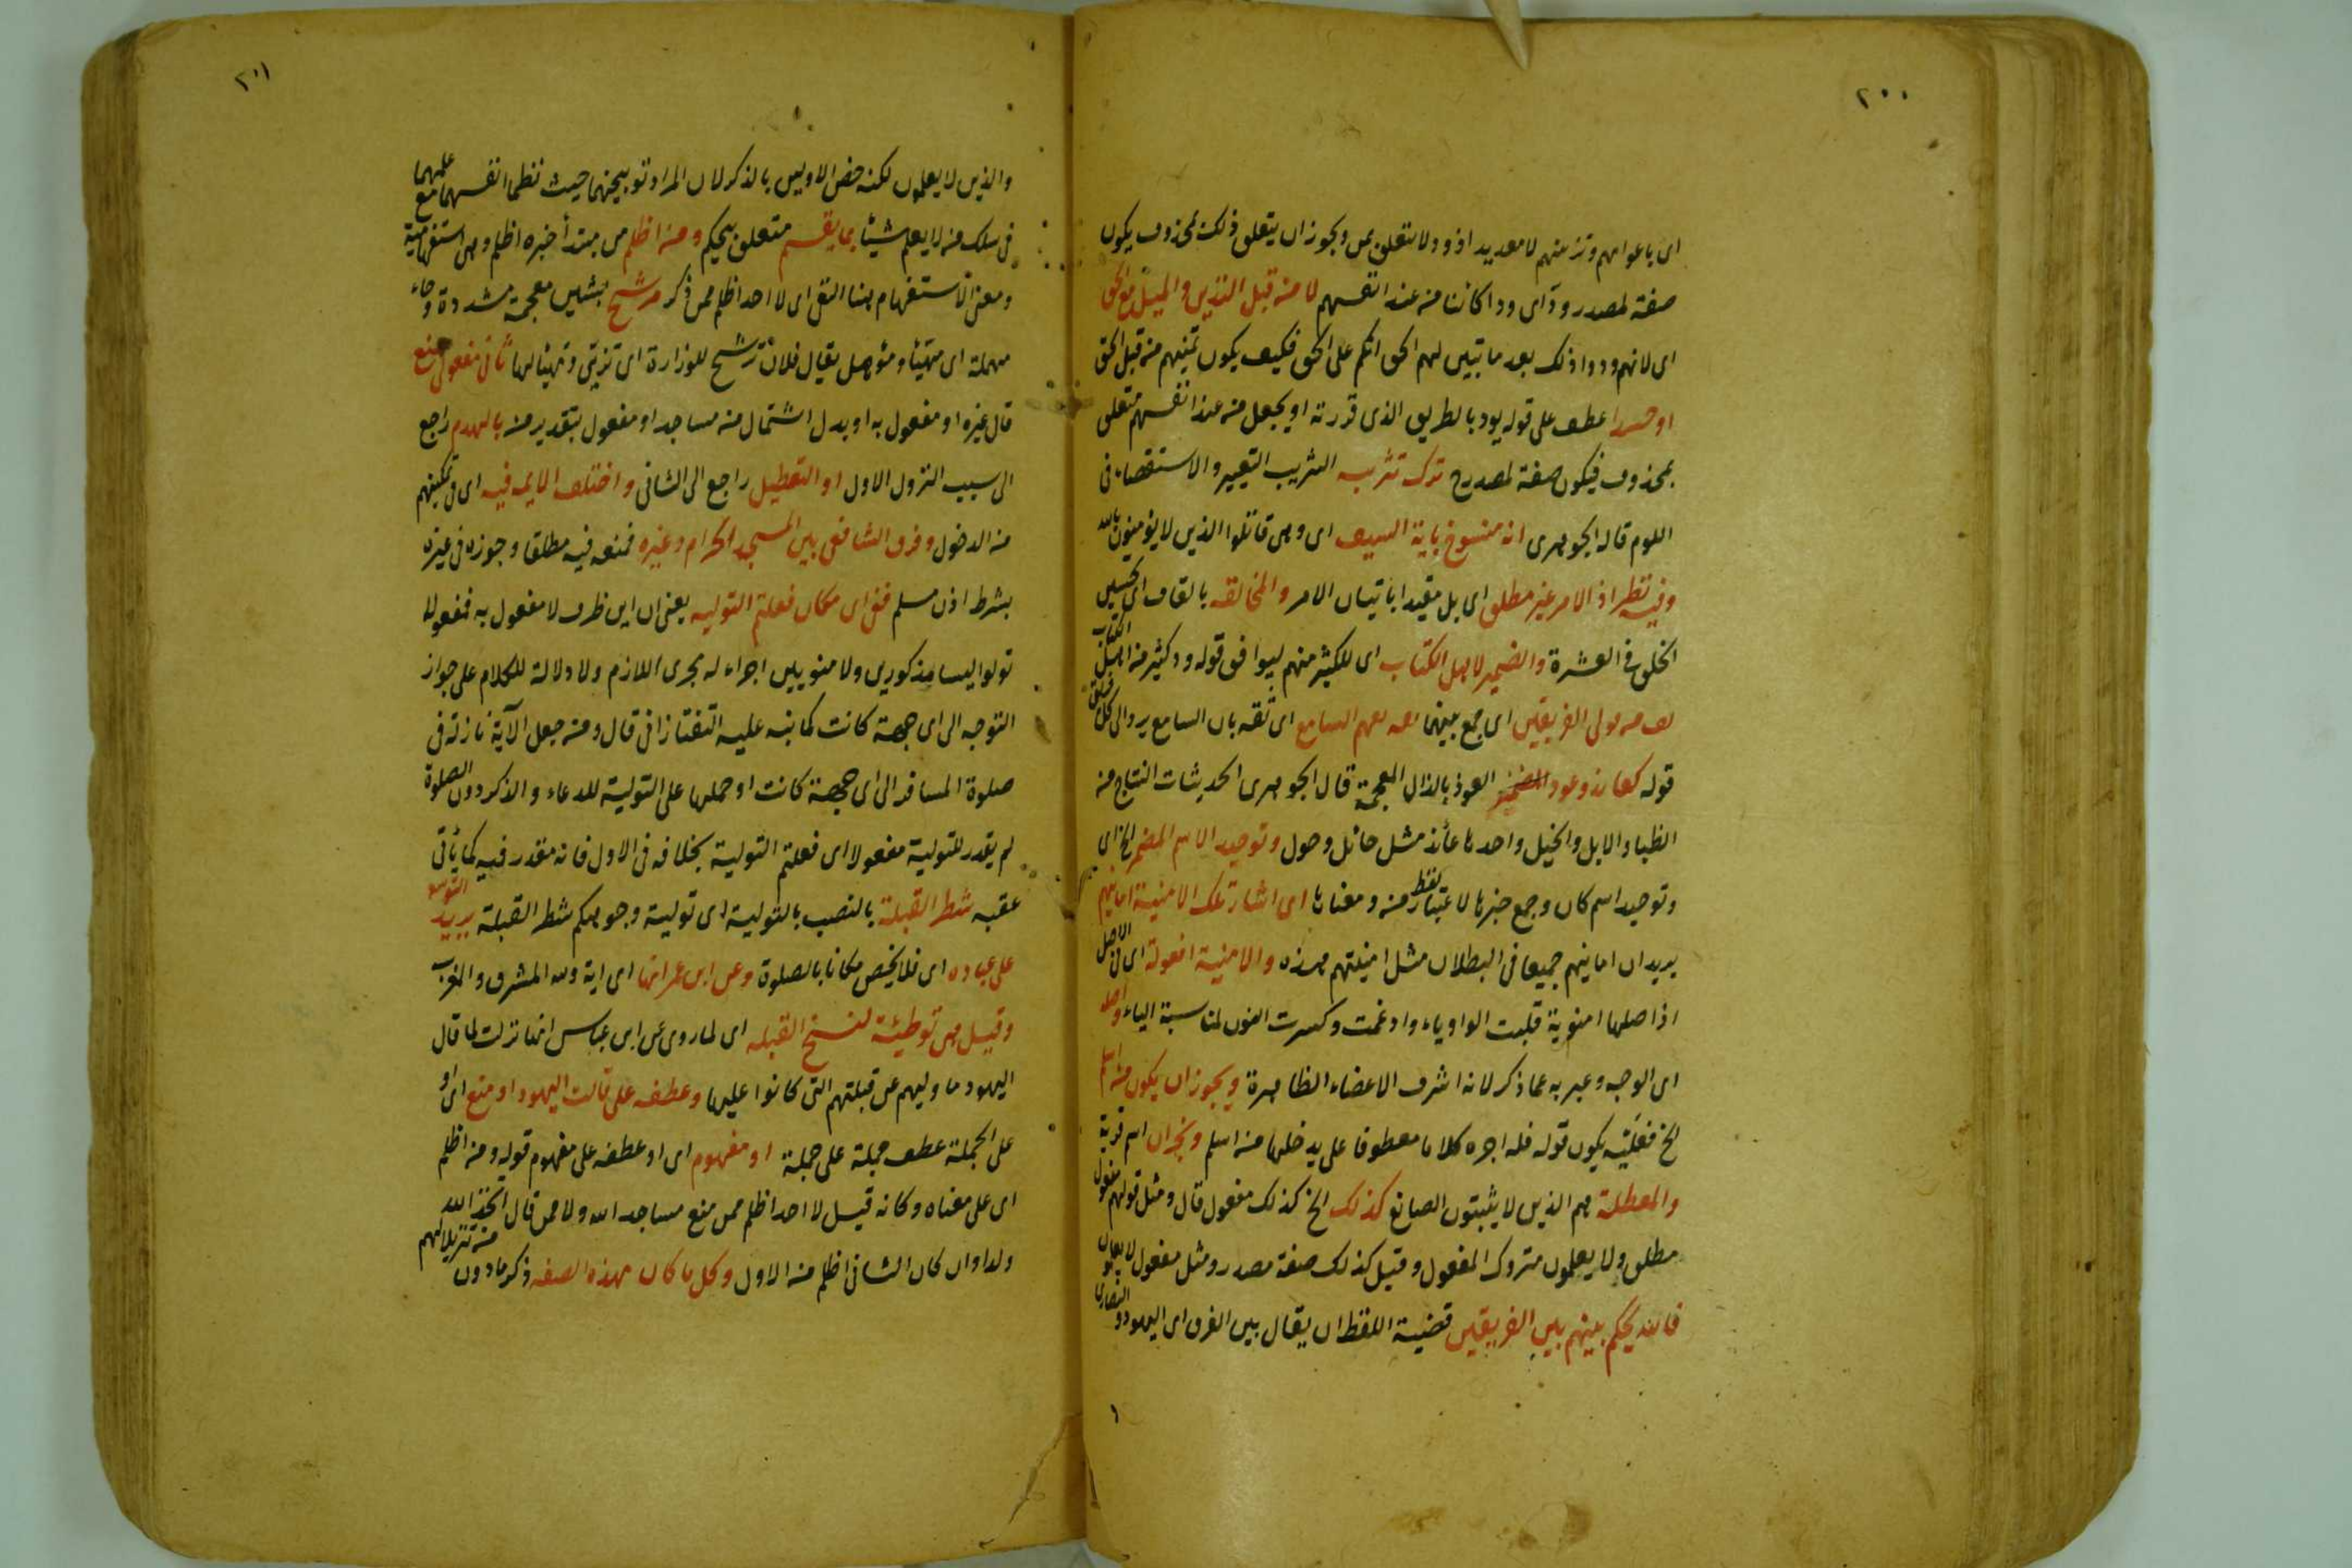 ٢٠٠
اى باغوائهم وتزيينهم لا بمعنى اذ ود لا يتعلق بمن ويجوز ان يتعلق ذلك بمحذوف يكون
صفة لمصدر ود اى ودا كائنا من عند انفسهم لا من قبل التدين والميل مع الحق
اى لانهم ودوا ذلك بعد ما تبين لهم الحق انكم على الحق فكيف يكون تمنيهم من قبل الحق
او حسدا عطف على قوله يود بالطريق الذى قررته او يجعل من عند انفسهم متعلق
بمحذوف فيكون صفة لمصدر ترك تثريبه التثريب التعيير والاستقصاء فى
اللوم قاله الجوهرى انه منسوخ باية السيف اى وهى قاتلوا الذين لا يؤمنون بالله
وفيه نظر اذ الامر غير مطلق اى بل مقيد باتيان الامر والمخالقه بالقاف اى تحسين
الخلق فى العشرة والضمير لاهل الكتاب اى للكثير منهم ليوافق قوله ود كثير من اهل الكتاب
بين قولى الفريقين اى جمع بينهما ثقة بفهم السامع اى ثقه بان السامع يرد الى كل فريق
قوله كعائذ وعوذ العوذ بالذال المعجمة قال الجوهرى الحديثات النتاج من
الظباء والابل والخيل واحدها عائذ مثل حائل وحول وتوحيد الاسم المضمر الخ اى
وتوحيد اسم كان وجمع خبرها لاعتبار لفظ من ومعناها اى اشارة تلك الامنية امانيهم
يريد ان امانيهم جميعا فى البطلان مثل امنيتهم هذه والامنية افعولة اى فى الاصل
اذ اصلها امنوية قلبت الواو ياء وادغمت وكسرت النون لمناسبة الياء
اى الوجه وعبر به عما ذكر لانه اشرف الاعضاء الظاهرة ويجوز ان يكون من اسلم
الخ فعليه يكون قوله فله اجره كلاما معطوفا على يدخلها من اسلم ونجران اسم قرية
والمعطلة هم الذين لا يثبتون الصانع كذلك الخ كذلك مفعول قال ومثل قولهم مفعول
مطلق ولا يعلمون متروك المفعول وقيل كذلك صفة مصدر ومثل مفعول لا يعلمون
فالله يحكم بينهم بين الفريقين قضية اللفظ ان يقال بين الفرق اى اليهود والنصارى
٢٠١
والذين لا يعلمون لكنه خص الاولين بالذكر لان المراد توبيخهما حيث نظما انفسهما مع علمهما
فى سلك من لا يعلم شيئا بما يقسم متعلق بيحكم ومن اظلم من مبتدأ خبره اظلم وهى استفهامية
ومعنى الاستفهام هنا النفى اى لا احد اظلم ممن ذكر مرشح بشين معجمة مشددة وحاء
مهملة اى متهيئا ومؤهل يقال فلان ترشح للوزارة اى تربى وتهيئا لها ثانى مفعولى منع
قال غيره او مفعول به او بدل اشتمال من مساجد او مفعول بتقدير من بالهدم راجع
الى سبب النزول الاول او التعطيل راجع الى الثانى واختلف الايمه فيه اى فى تمكينهم
من الدخول وفرق الشافعى بين المسجد الحرام وغيره فمنعه فيه مطلقا وجوزه فى غيره
بشرط اذن مسلم ففى اى مكان فعلتم التوليه يعنى ان اين ظرف لا مفعول به فمفعولا
تولوا ليسا مذكورين ولا منويين اجراء له مجرى اللازم ولا دلالة للكلام على جواز
التوجه الى اى جهة كانت كما نبه عليه التفتازانى قال ومن جعل الآية نازلة فى
صلوة المسافر الى اى جهة كانت او حملها على التولية للدعاء والذكر دون الصلوة
لم يقدر للتولية مفعولا اى فعلتم التولية بخلافه فى الاول فانه مقدر فيه كما يأتى
عقبه شطر القبلة بالنصب بالتولية اى تولية وجوهكم شطر القبلة يريد التوسعة
على عباده اى فلا يختص مكانا بالصلوة وعن ابن عمر انها اى اية ولله المشرق والمغرب
وقيل هى توطئة لنسخ القبله اى لما روى عن ابن عباس انها نزلت لما قال
اليهود ما وليهم عن قبلتهم التى كانوا عليها وعطفه على قالت اليهود او منع اى او
على الجملة عطف جملة على جملة او مفهوم اى او عطفه على مفهوم قوله ومن اظلم
اى على معناه وكانه قيل لا احد اظلم ممن منع مساجد الله ولا ممن قال اتخذ الله
ولدا وان كان الثانى اظلم من الاول وكل ما كان بهذه الصفه ذكر ما دون من تنزيلا لهم